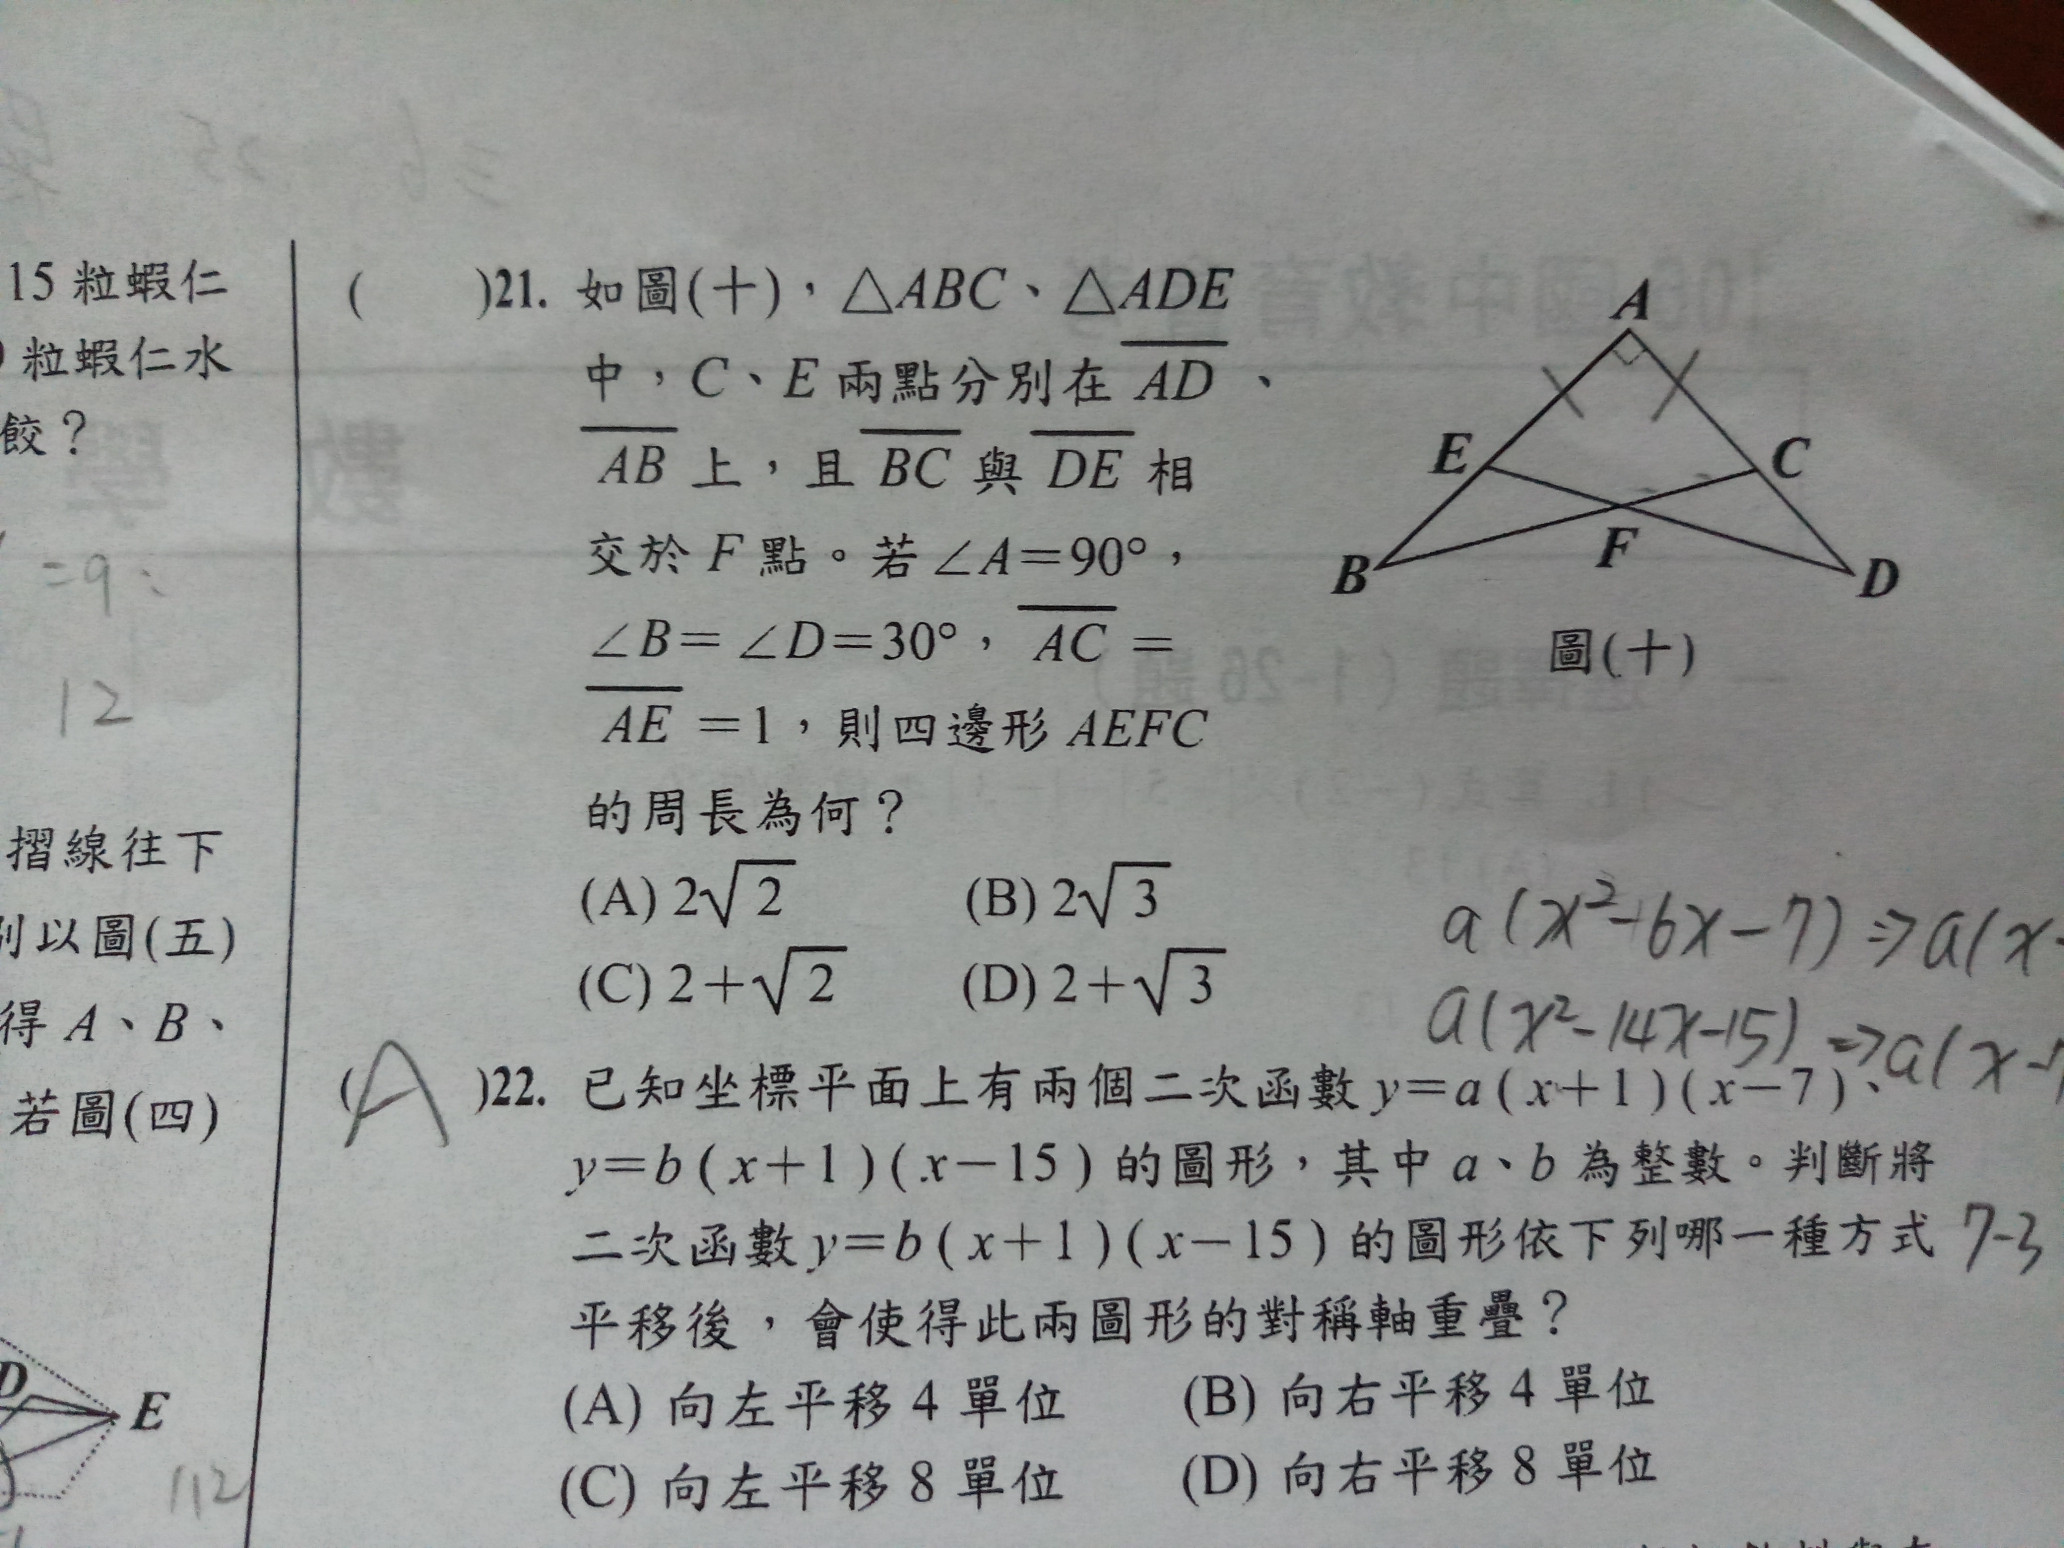 15 粒蝦仁
粒蝦仁水
餃？
=9:
12
摺線往下
別以圖(五)
得 A、B、
若圖(四)
D
E
112
( )21. 如圖(十)，△ABC、△ADE
中，C、E 兩點分別在 AD、
AB 上，且 BC 與 DE 相
交於 F 點。若∠A=90°，
∠B=∠D=30°，AC=
AE=1，則四邊形 AEFC
的周長為何？
(A) 2√2 (B) 2√3
(C) 2+√2 (D) 2+√3
A
E
C
B
F
D
圖(十)
a(x²-6x-7)⇒a(x-
a(x²-14x-15)⇒a(x-7
(A)22. 已知坐標平面上有兩個二次函數 y=a(x+1)(x-7)、
y=b(x+1)(x-15) 的圖形，其中 a、b 為整數。判斷將
二次函數 y=b(x+1)(x-15) 的圖形依下列哪一種方式
7-3
平移後，會使得此兩圖形的對稱軸重疊？
(A) 向左平移 4 單位 (B) 向右平移 4 單位
(C) 向左平移 8 單位 (D) 向右平移 8 單位